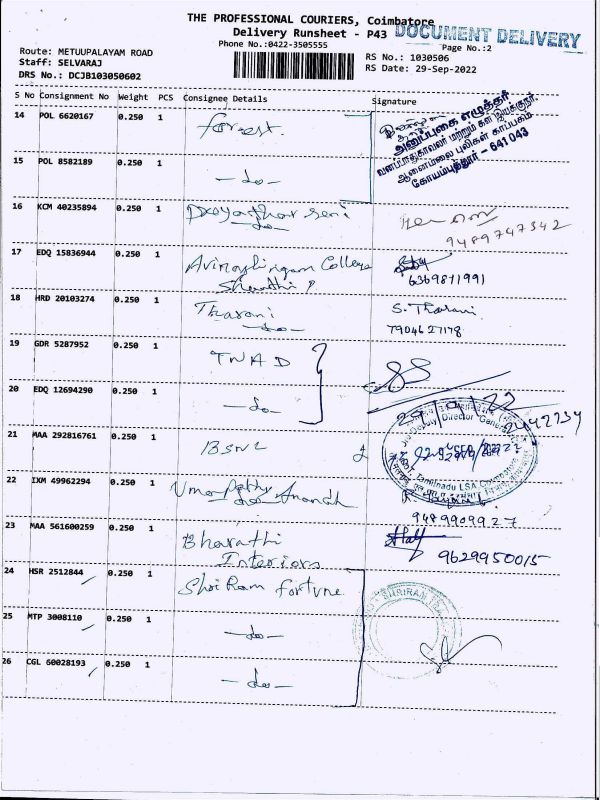 THE PROFESSIONAL COURIERS, Coimbatore
Delivery Runsheet - P43
DOCUMENT DELIVERY
Phone No.:0422-3505555
Page No.:2
Route: METUUPALAYAM ROAD
RS No.: 1030506
Staff: SELVARAJ
RS Date: 29-Sep-2022
DRS No.: DCJB103050602
S No Consignment No Weight PCS Consignee Details Signature
14 POL 6620167 0.250 1 forest.
அனுப்புகை எழுத்தர்
வனப்பாதுகாவலர் மற்றும் கள இயக்குநர்,
ஆனைமலை புலிகள் காப்பகம்
கோயம்புத்தூர் - 641 043
15 POL 8582189 0.250 1 -do-
16 KCM 40235894 0.250 1
-do-
9489747342
17 EDQ 15836944 0.250 1 Avinashlingam College
6369871991
18 HRD 20103274 0.250 1 Tharani S. Tharani
-do- 7904627178
19 GDR 5287952 0.250 1 TWAD
20 EDQ 12694290 0.250 1 -do-
29/9/22
2442734
21 MAA 292816761 0.250 1 BSNL
Deputy Director General
Tamilnadu LSA Coimbatore
22 IXM 49962294 0.250 1 Umapathy Anandh
9489909927
23 MAA 561600259 0.250 1 Bharathi
Interiors 9629950015
24 HSR 2512844 0.250 1 Shri Ram fortune
SHRIRAM
25 MTP 3008110 0.250 1 -do-
26 CGL 60028193 0.250 1 -do-